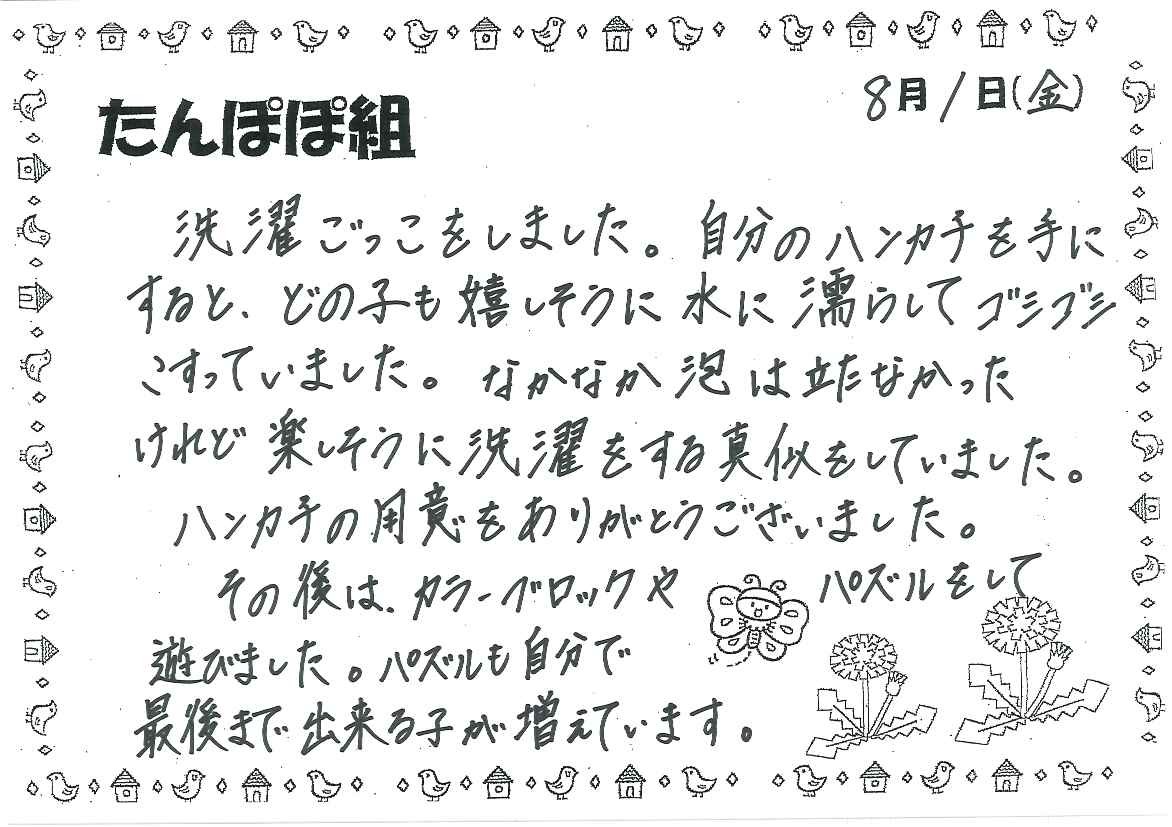 たんぽぽ組
8月1日(金)
洗濯ごっこをしました。自分のハンカチを手に
すると、どの子も嬉しそうに水に濡らしてゴシゴシ
こすっていました。なかなか泡は立たなかった
けれど楽しそうに洗濯をする真似をしていました。
ハンカチの用意をありがとうございました。
その後は、カラーブロックや パズルをして
遊びました。パズルも自分で
最後まで出来る子が増えています。